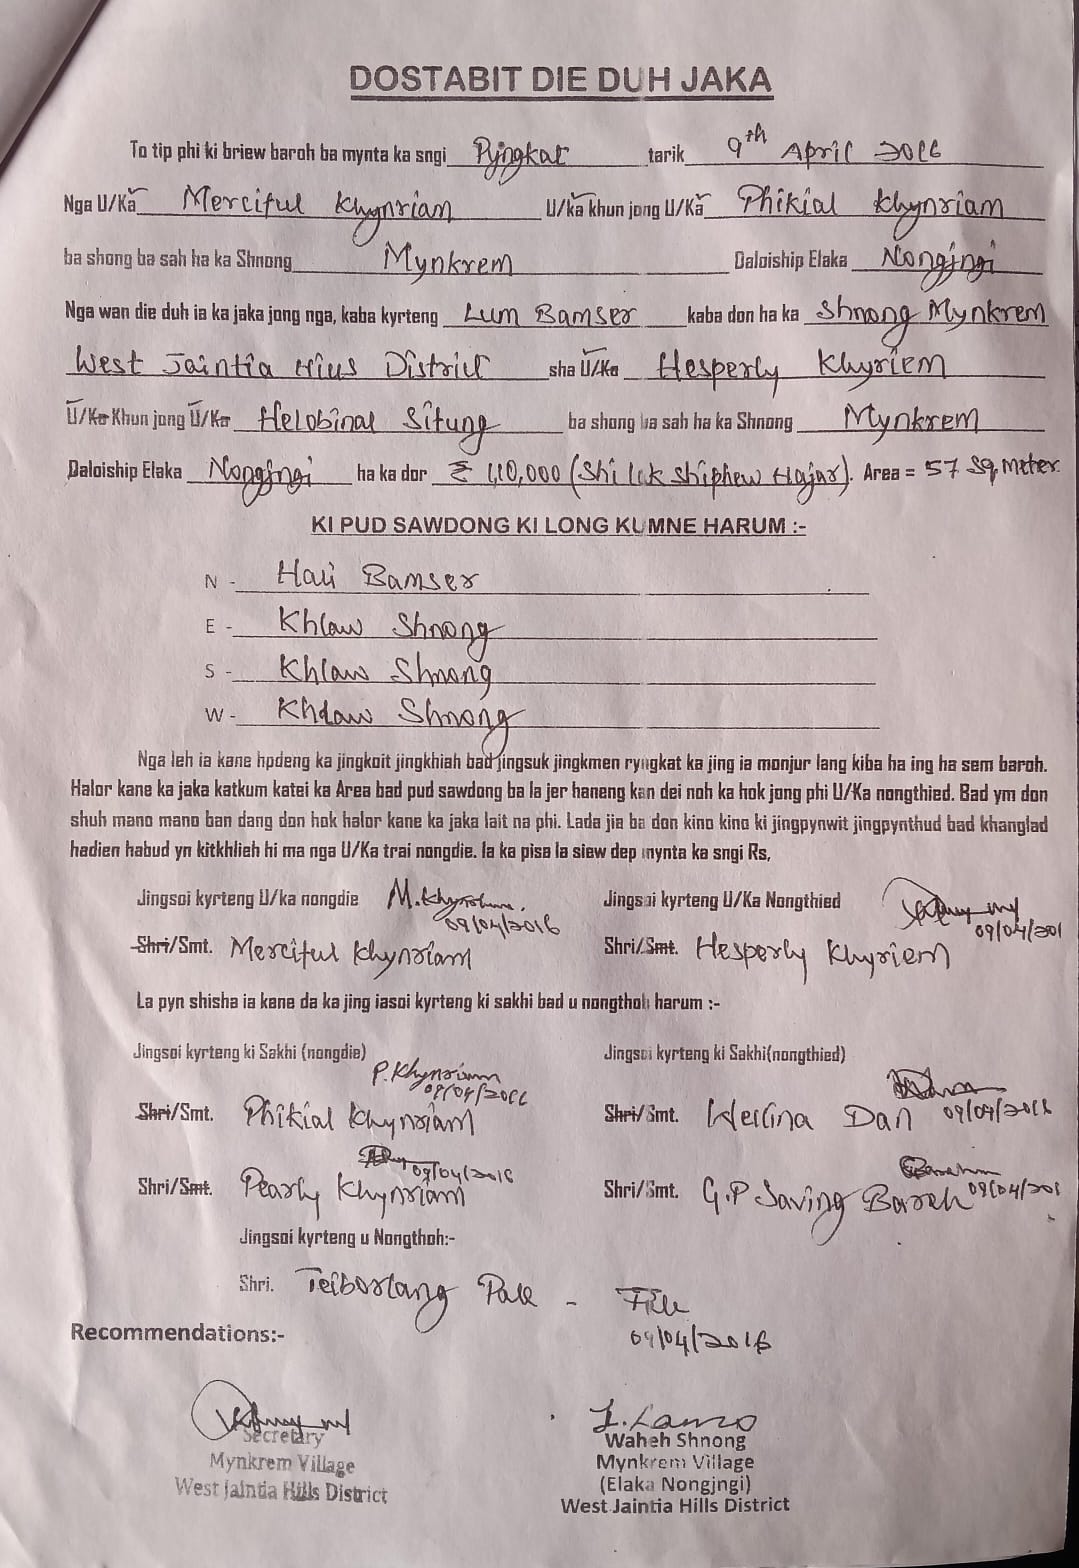 DOSTABIT DIE DUH JAKA
To tip phi ki briew baroh ba mynta ka sngi Pyngkat tarik 9th April 2016
Nga U/Ka Merciful Khynriam U/ka khun jong U/Ka Phikial Khynriam
ba shong ba sah ha ka Shnong Mynkrem Daloiship Elaka Nongjngi
Nga wan die duh ia ka jaka jong nga, kaba kyrteng Lum Bamser kaba don ha ka Shnong Mynkrem
West Jaintia Hills District sha U/Ka Hesperly Khyriem
U/Ka Khun jong U/Ka Helobinal Situng ba shong ba sah ha ka Shnong Mynkrem
Daloiship Elaka Nongjngi ha ka dor ₹ 1,10,000 (Shi lak Shiphew Hajar). Area = 57 Sq, Meter.
KI PUD SAWDONG KI LONG KUMNE HARUM :-
N - Hali Bamser
E - Khlaw Shnong
S - Khlaw Shnong
W - Khlaw Shnong
Nga leh ia kane hpdeng ka jingkoit jingkhiah bad jingsuk jingkmen ryngkat ka jing ia monjur lang kiba ha ing ha sem baroh.
Halor kane ka jaka katkum katei ka Area bad pud sawdong ba la jer haneng kan dei noh ka hok jong phi U/Ka nongthied. Bad ym don
shuh mano mano ban dang don hok halor kane ka jaka lait na phi. Lada jia ba don kino kino ki jingpynwit jingpynthud bad khanglad
hadien habud yn kitkhlieh hi ma nga U/Ka trai nongdie. Ia ka pisa la siew dep mynta ka sngi Rs,
Jingsoi kyrteng U/ka nongdie M.Khynriam. Jingsoi kyrteng U/Ka Nongthied
09/04/2016 09/04/201
Shri/Smt. Merciful Khynriam Shri/Smt. Hesperly Khyriem
La pyn shisha ia kane da ka jing iasoi kyrteng ki sakhi bad u nongthoh harum :-
Jingsoi kyrteng ki Sakhi (nongdie) Jingsoi kyrteng ki Sakhi(nongthied)
P.Khynriam
09/04/2016
Shri/Smt. Phikial Khynriam Shri/Smt. Weilina Dan 09/04/2016
09/04/2016
Shri/Smt. Pearly Khynriam Shri/Smt. G.P Saving Bareh 09/04/201
Jingsoi kyrteng u Nongthoh:-
Shri. Teiborlang Pale -
09/04/2016
Recommendations:-
Secretary
Mynkrem Village
West Jaintia Hills District
Waheh Shnong
Mynkrem Village
(Elaka Nongjngi)
West Jaintia Hills District